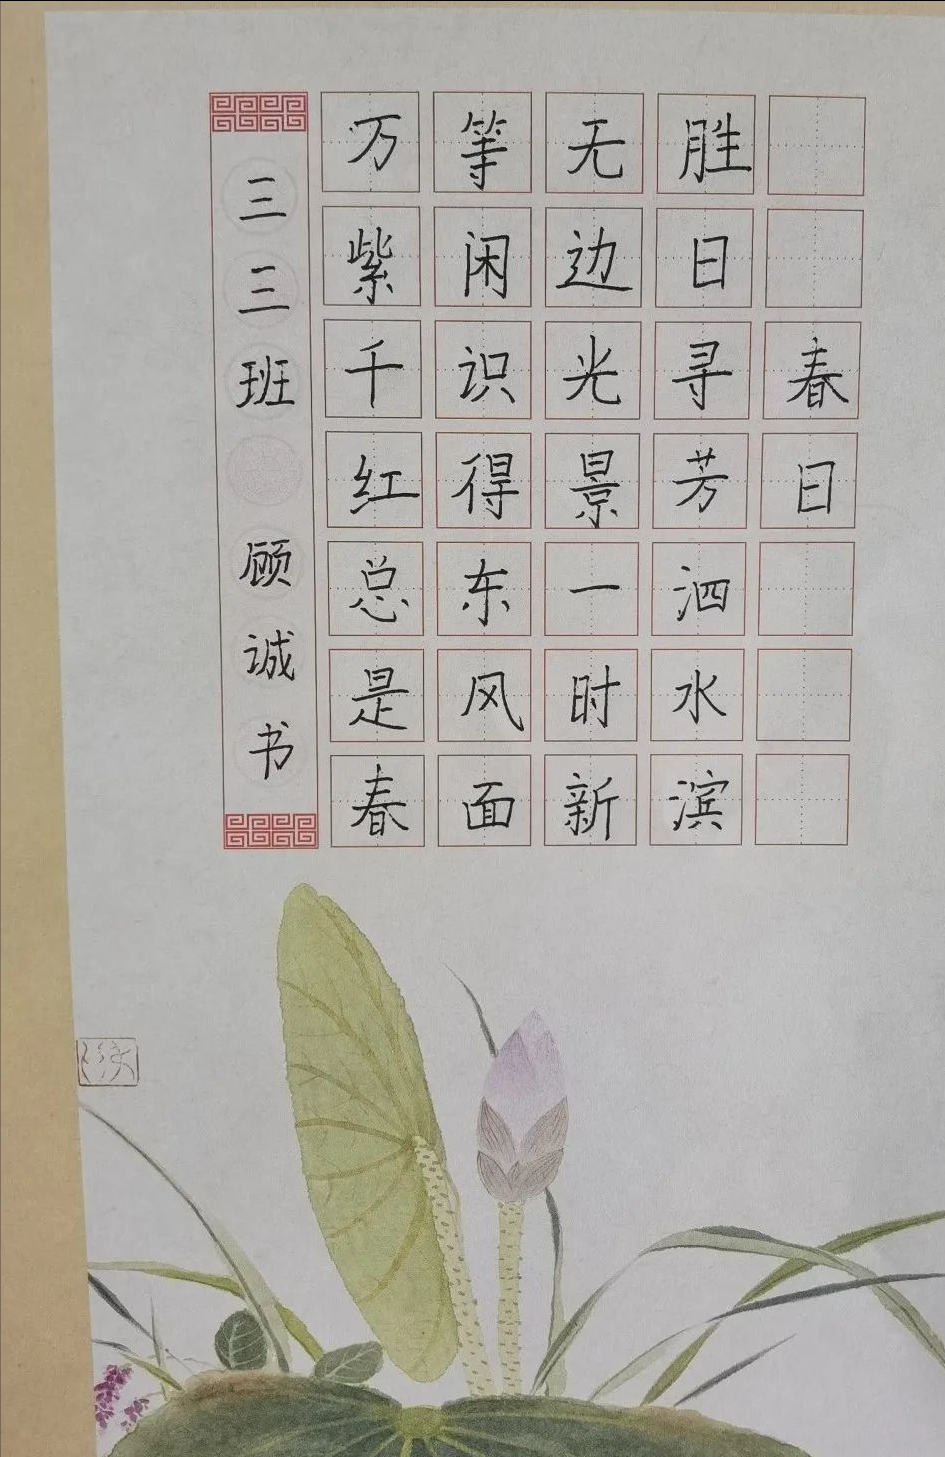 春日
胜日寻芳泗水滨
无边光景一时新
等闲识得东风面
万紫千红总是春
三三班 顾诚书